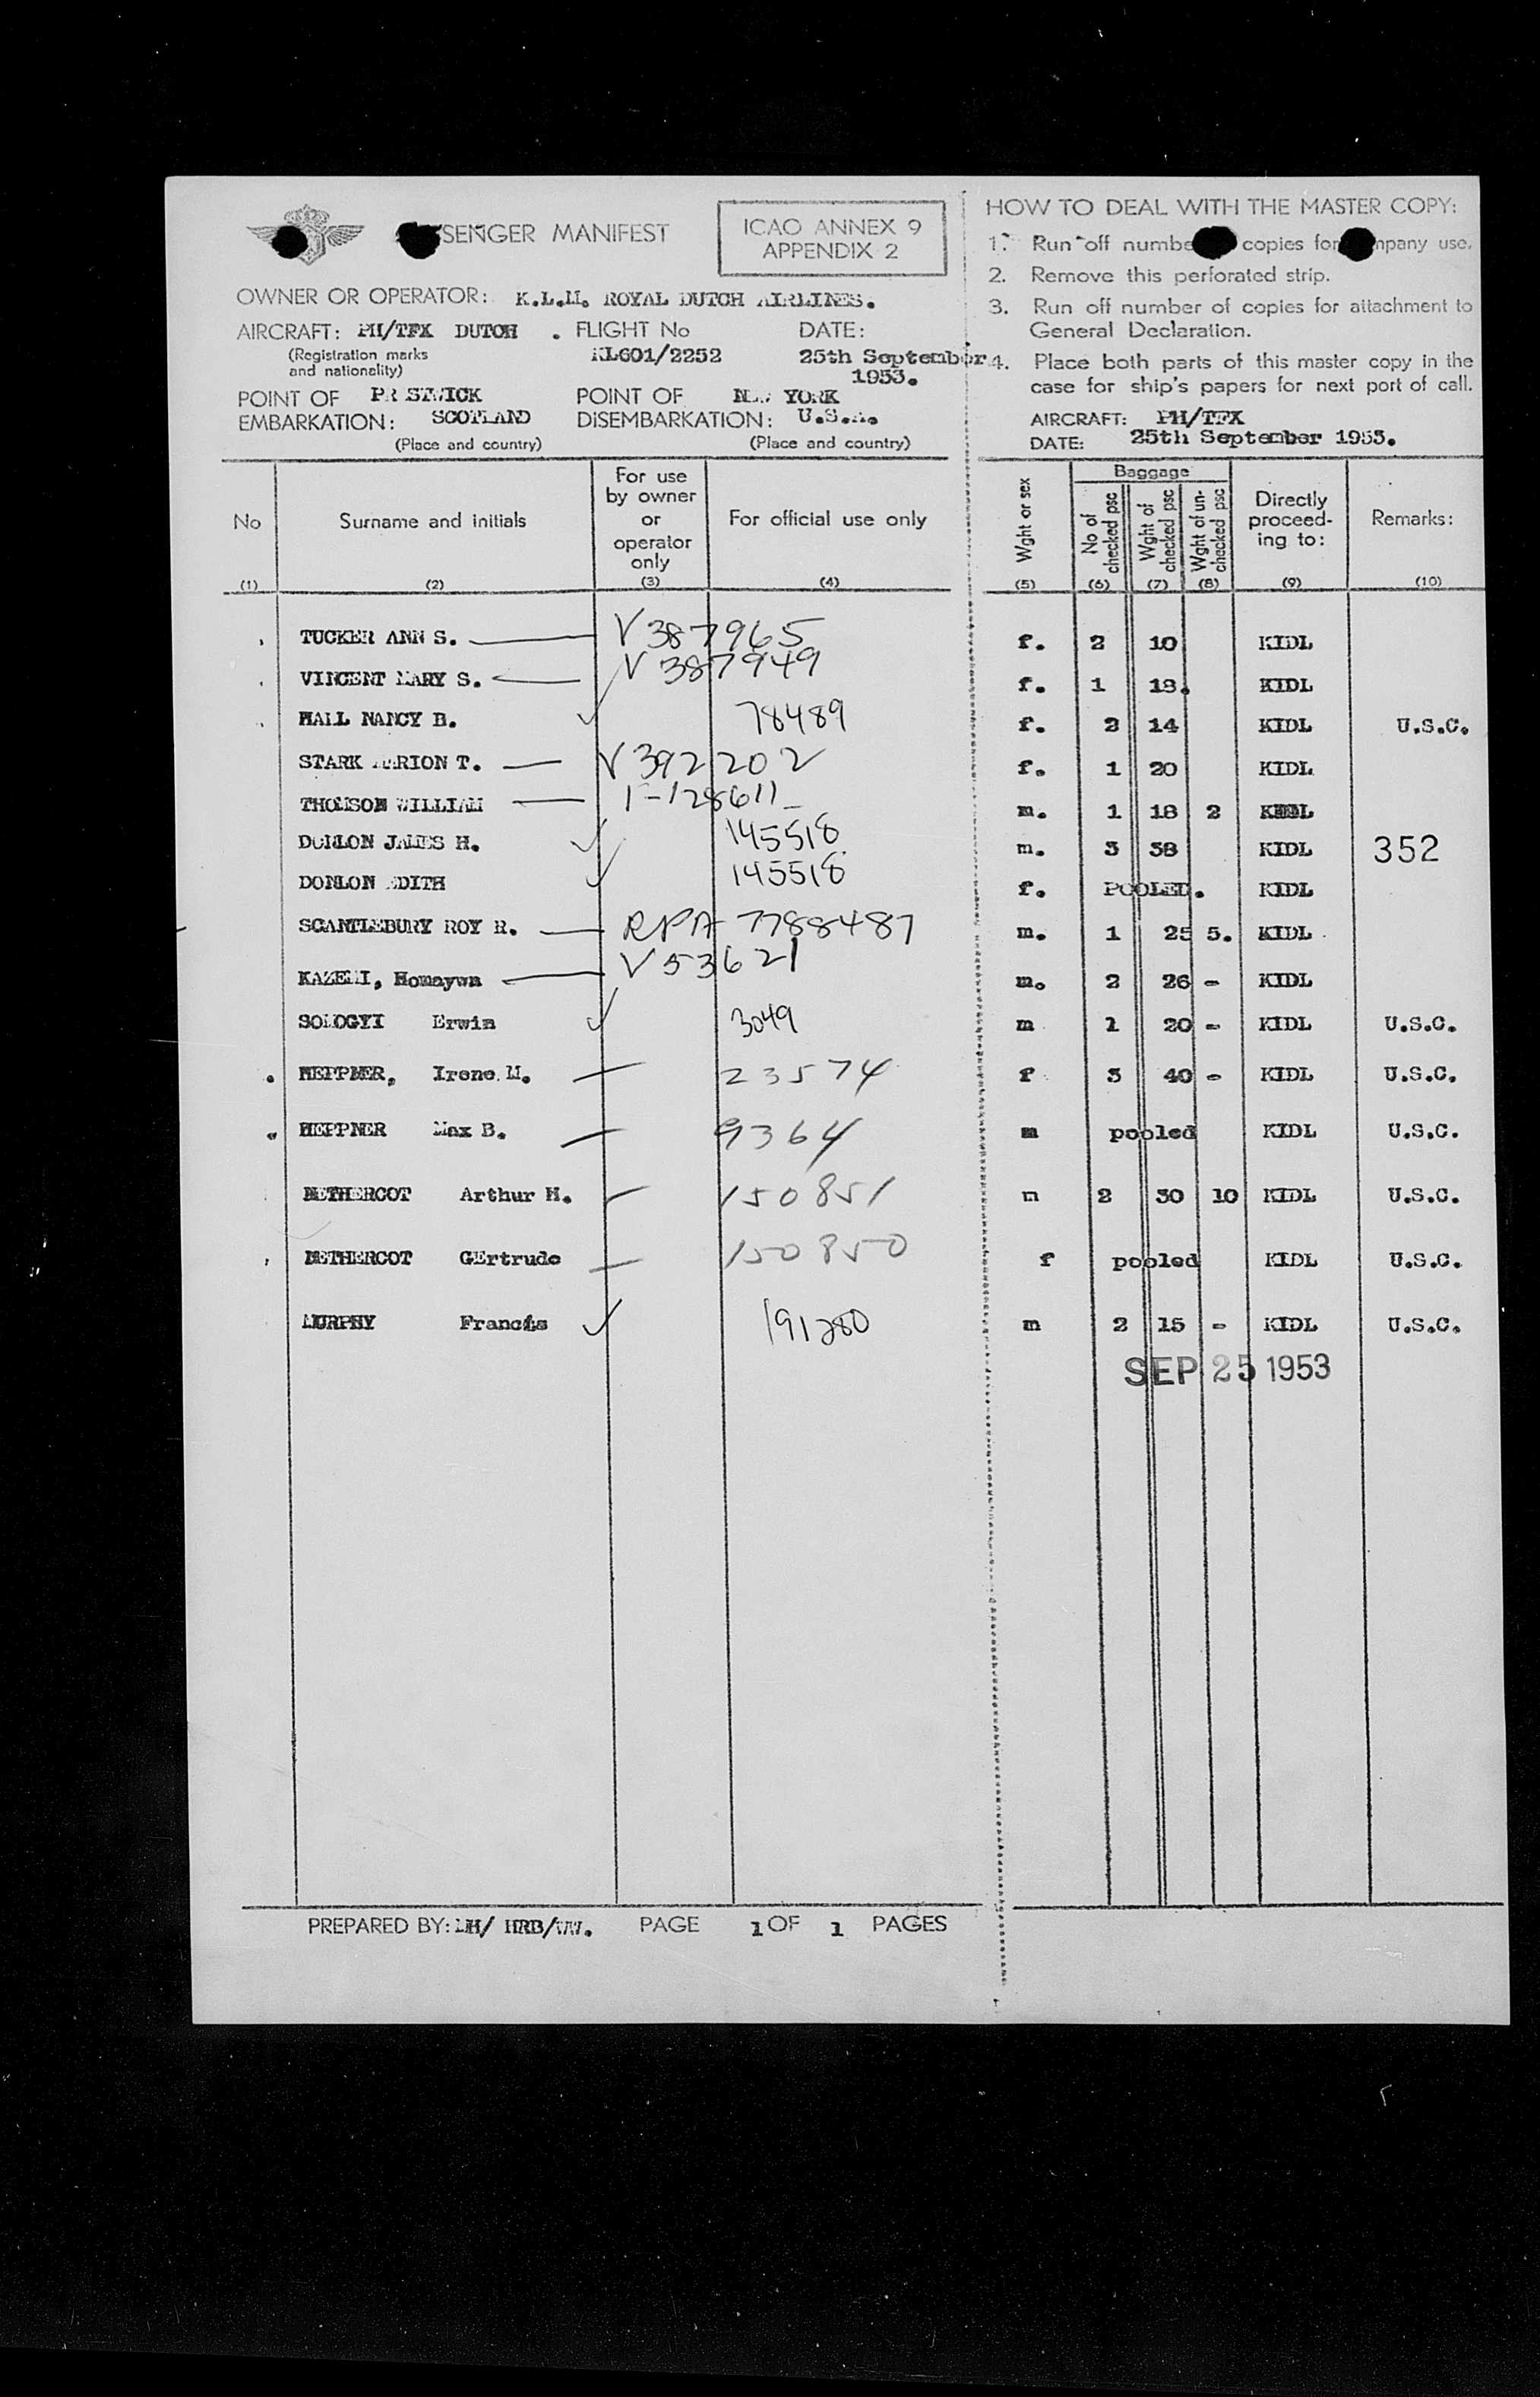 SENGER MANIFEST
ICAO ANNEX 9
APPENDIX 2
OWNER OR OPERATOR: K.L.M. ROYAL DUTCH AIRLINES.
AIRCRAFT: PH/TFX DUTCH . FLIGHT No DATE:
(Registration marks and nationality) KL601/2252 25th September 1953.
POINT OF EMBARKATION: PR STWICK SCOTLAND POINT OF DISEMBARKATION: NEW YORK U.S.A.
(Place and country) (Place and country)
HOW TO DEAL WITH THE MASTER COPY:
1. Run off numbe copies for mpany use.
2. Remove this perforated strip.
3. Run off number of copies for attachment to
General Declaration.
4. Place both parts of this master copy in the
case for ship's papers for next port of call.
AIRCRAFT: PH/TFX
DATE: 25th September 1953.
No (1)
Surname and initials (2)
For use by owner or operator only (3)
For official use only (4)
Wght or sex (5)
Baggage
No of checked psc (6)
Wght of checked psc (7)
Wght of un-checked psc (8)
Directly proceed-ing to: (9)
Remarks: (10)
TUCKER ANN S. V 387965 f. 2 10 KIDL
VINCENT MARY S. V 387949 f. 1 18. KIDL
HALL NANCY B. 78489 f. 2 14 KIDL U.S.C.
STARK MARION T. V 392202 f. 1 20 KIDL
THOMSON WILLIAM 1-128611 m. 1 18 2 KIDL
DONLON JAMES H. 145518 m. 3 38 KIDL 352
DONLON EDITH 145518 f. POOLED. KIDL
SCANTLEBURY ROY R. RPA 7788487 m. 1 25 5. KIDL
KAZEMI, Homaywn V 53621 m. 2 26 - KIDL
SOLOGYI Erwin 3049 m 1 20 - KIDL U.S.C.
HEPPNER, Irene M. 23574 f 3 40 - KIDL U.S.C.
HEPPNER Max B. 9364 m pooled KIDL U.S.C.
NETHERCOT Arthur H. 150851 m 2 30 10 KIDL U.S.C.
NETHERCOT GErtrude 150850 f pooled KIDL U.S.C.
MURPHY Francis 191280 m 2 15 - KIDL U.S.C.
SEP 25 1953
PREPARED BY: HRB/ PAGE 1 OF 1 PAGES